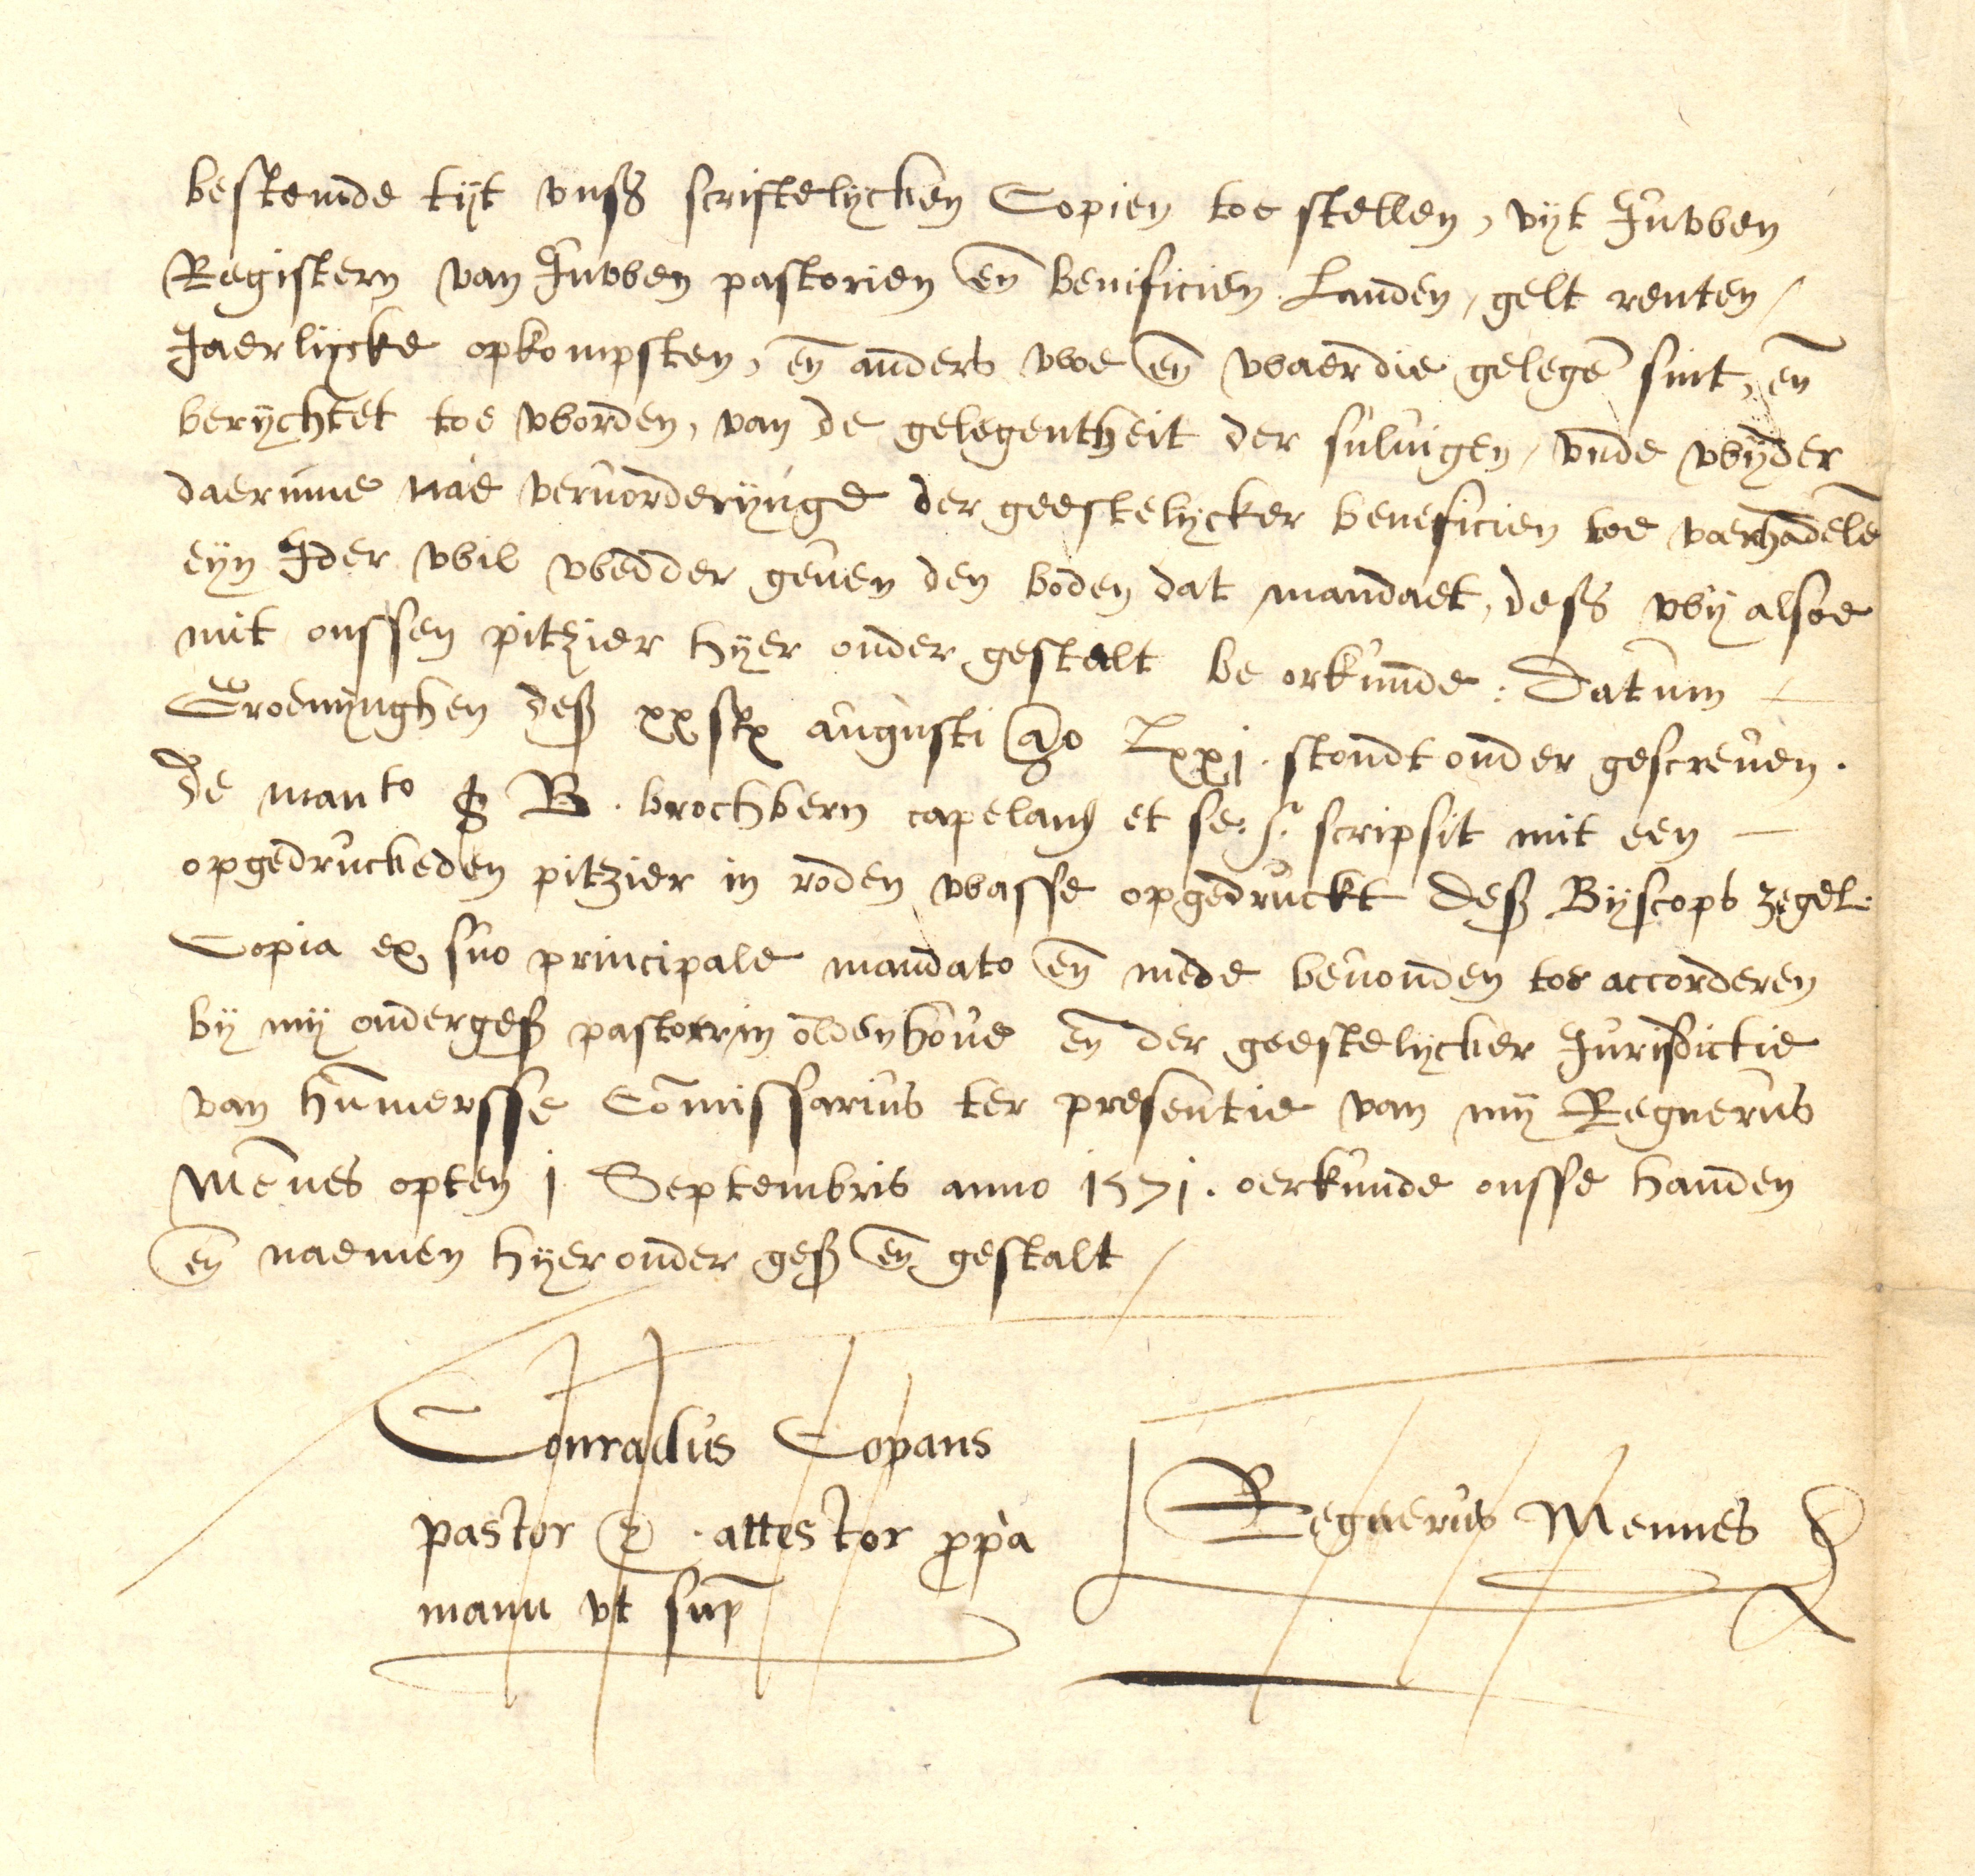 bestemde tijt vnss scriftelycken Copien toe stellen, vyt Juwen
Registern van Juwen pastorien en̄ benificien Landen, gelt renten,
Jaerlijcke opkompsten, en̄ anders vwe en̄ waerdie gelegē sint, en̄
berychtet toe worden, van de gelegentheit der suluigen, vnde wyder
daerume nae veruorderynge der geestelycker beneficien toe verhādelē
eyn Jder wil wedder geuen den boden dat mandaet, dess wy alsoe
mit onssen pitzier hyer onder gestelt be orkunde: Datum
Groenynghen dess augusti ao Lxxj. stondt onder gescreuen.
De manto B. brochbern capelang et se: scripsit mit een
opgedruckeden pitzier in roden wasse opgedruckt dess Byscops zegel.
Copia ex suo principale mandato en̄ mede beuonden toe accorderen
by my onderges pastoer in oldenhoue en̄ der geestelycker Jurisdictie
van hūmersse Cōmissarius ter presentie van my Regnerus
Mēnes opten j Septembris anno 1571. oerkunde onsse handen
en̄ naemen hyer onder ges en̄ gestalt
Conradus Copans
pastor attestor ppa
manu vt sup
Regnerus Mennes